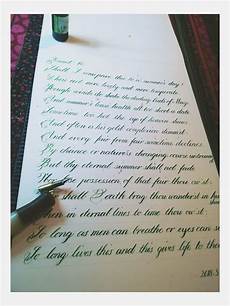 Sonnet 18
Shall I compare thee to a summer's day?
Thou art more lovely and more temperate
Rough winds do shake the darling buds of May
And summer's lease hath all too short a date
Sometime too hot the eye of heaven shines
And often is his gold complexion dimmed
And every fair from fair sometime declines
By chance or nature's changing course untrimm
But thy eternal summer shall not fade
lose possession of that fair thou ow'st
shall Death brag thou wander'st in his
When in eternal lines to time thou ow'st
So long as men can breathe or eyes can see
So long lives this and this gives life to thee